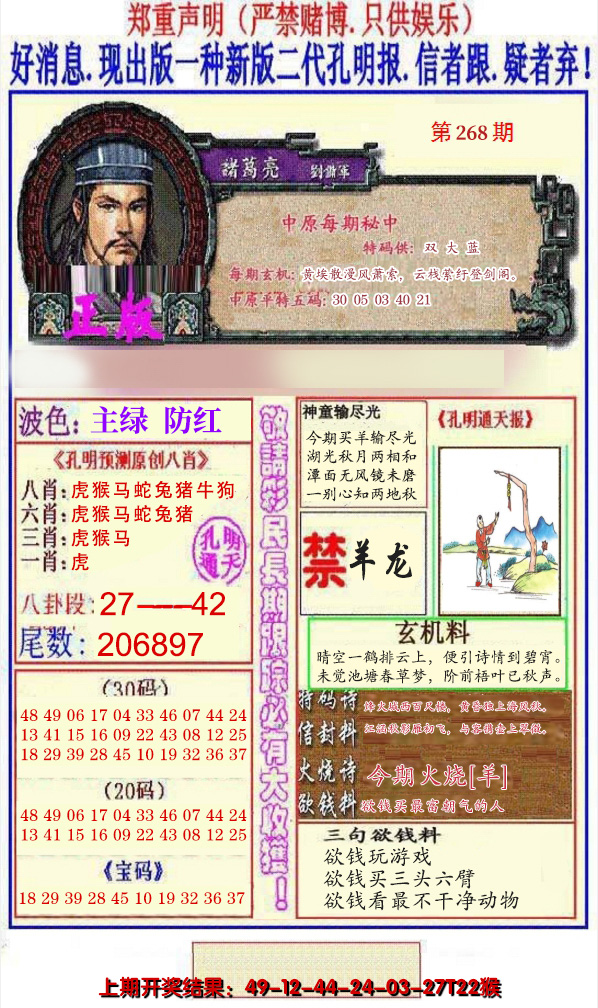 郑重声明（严禁赌博.只供娱乐）
好消息.现出版一种新版二代孔明报.信者跟.疑者弃！
第268期
諸葛亮 劉備軍
中原每期秘中
特码供：双 大 蓝
每期玄机：黄埃散漫风萧索，云栈萦纡登剑阁。
中原平特五码：30 05 03 40 21
正版
波色：主绿 防红
《孔明预测原创八肖》
八肖：虎猴马蛇兔猪牛狗
六肖：虎猴马蛇兔猪
三肖：虎猴马
一肖：虎
孔明
通天
八卦段：27——42
尾数：206897
（30码）
48 49 06 17 04 33 46 07 44 24
13 41 15 16 09 22 43 08 12 25
18 29 39 28 45 10 19 32 36 37
（20码）
48 49 06 17 04 33 46 07 44 24
13 41 15 16 09 22 43 08 12 25
《宝码》
18 29 39 28 45 10 19 32 36 37
敬請彩民長期跟踪必有大收獲！
神童输尽光
今期买羊输尽光
湖光秋月两相和
潭面无风镜未磨
一别心知两地秋
《孔明通天报》
禁 羊龙
玄机料
晴空一鹤排云上，便引诗情到碧霄。
未觉池塘春草梦，阶前梧叶已秋声。
特码诗 烽火城西百尺楼，黄昏独上海风秋。
信封料 江涵秋影雁初飞，与客携壶上翠微。
火烧诗 今期火烧[羊]
欲钱料 欲钱买最富朝气的人
三句欲钱料
欲钱玩游戏
欲钱买三头六臂
欲钱看最不干净动物
上期开奖结果：49-12-44-24-03-27T22猴